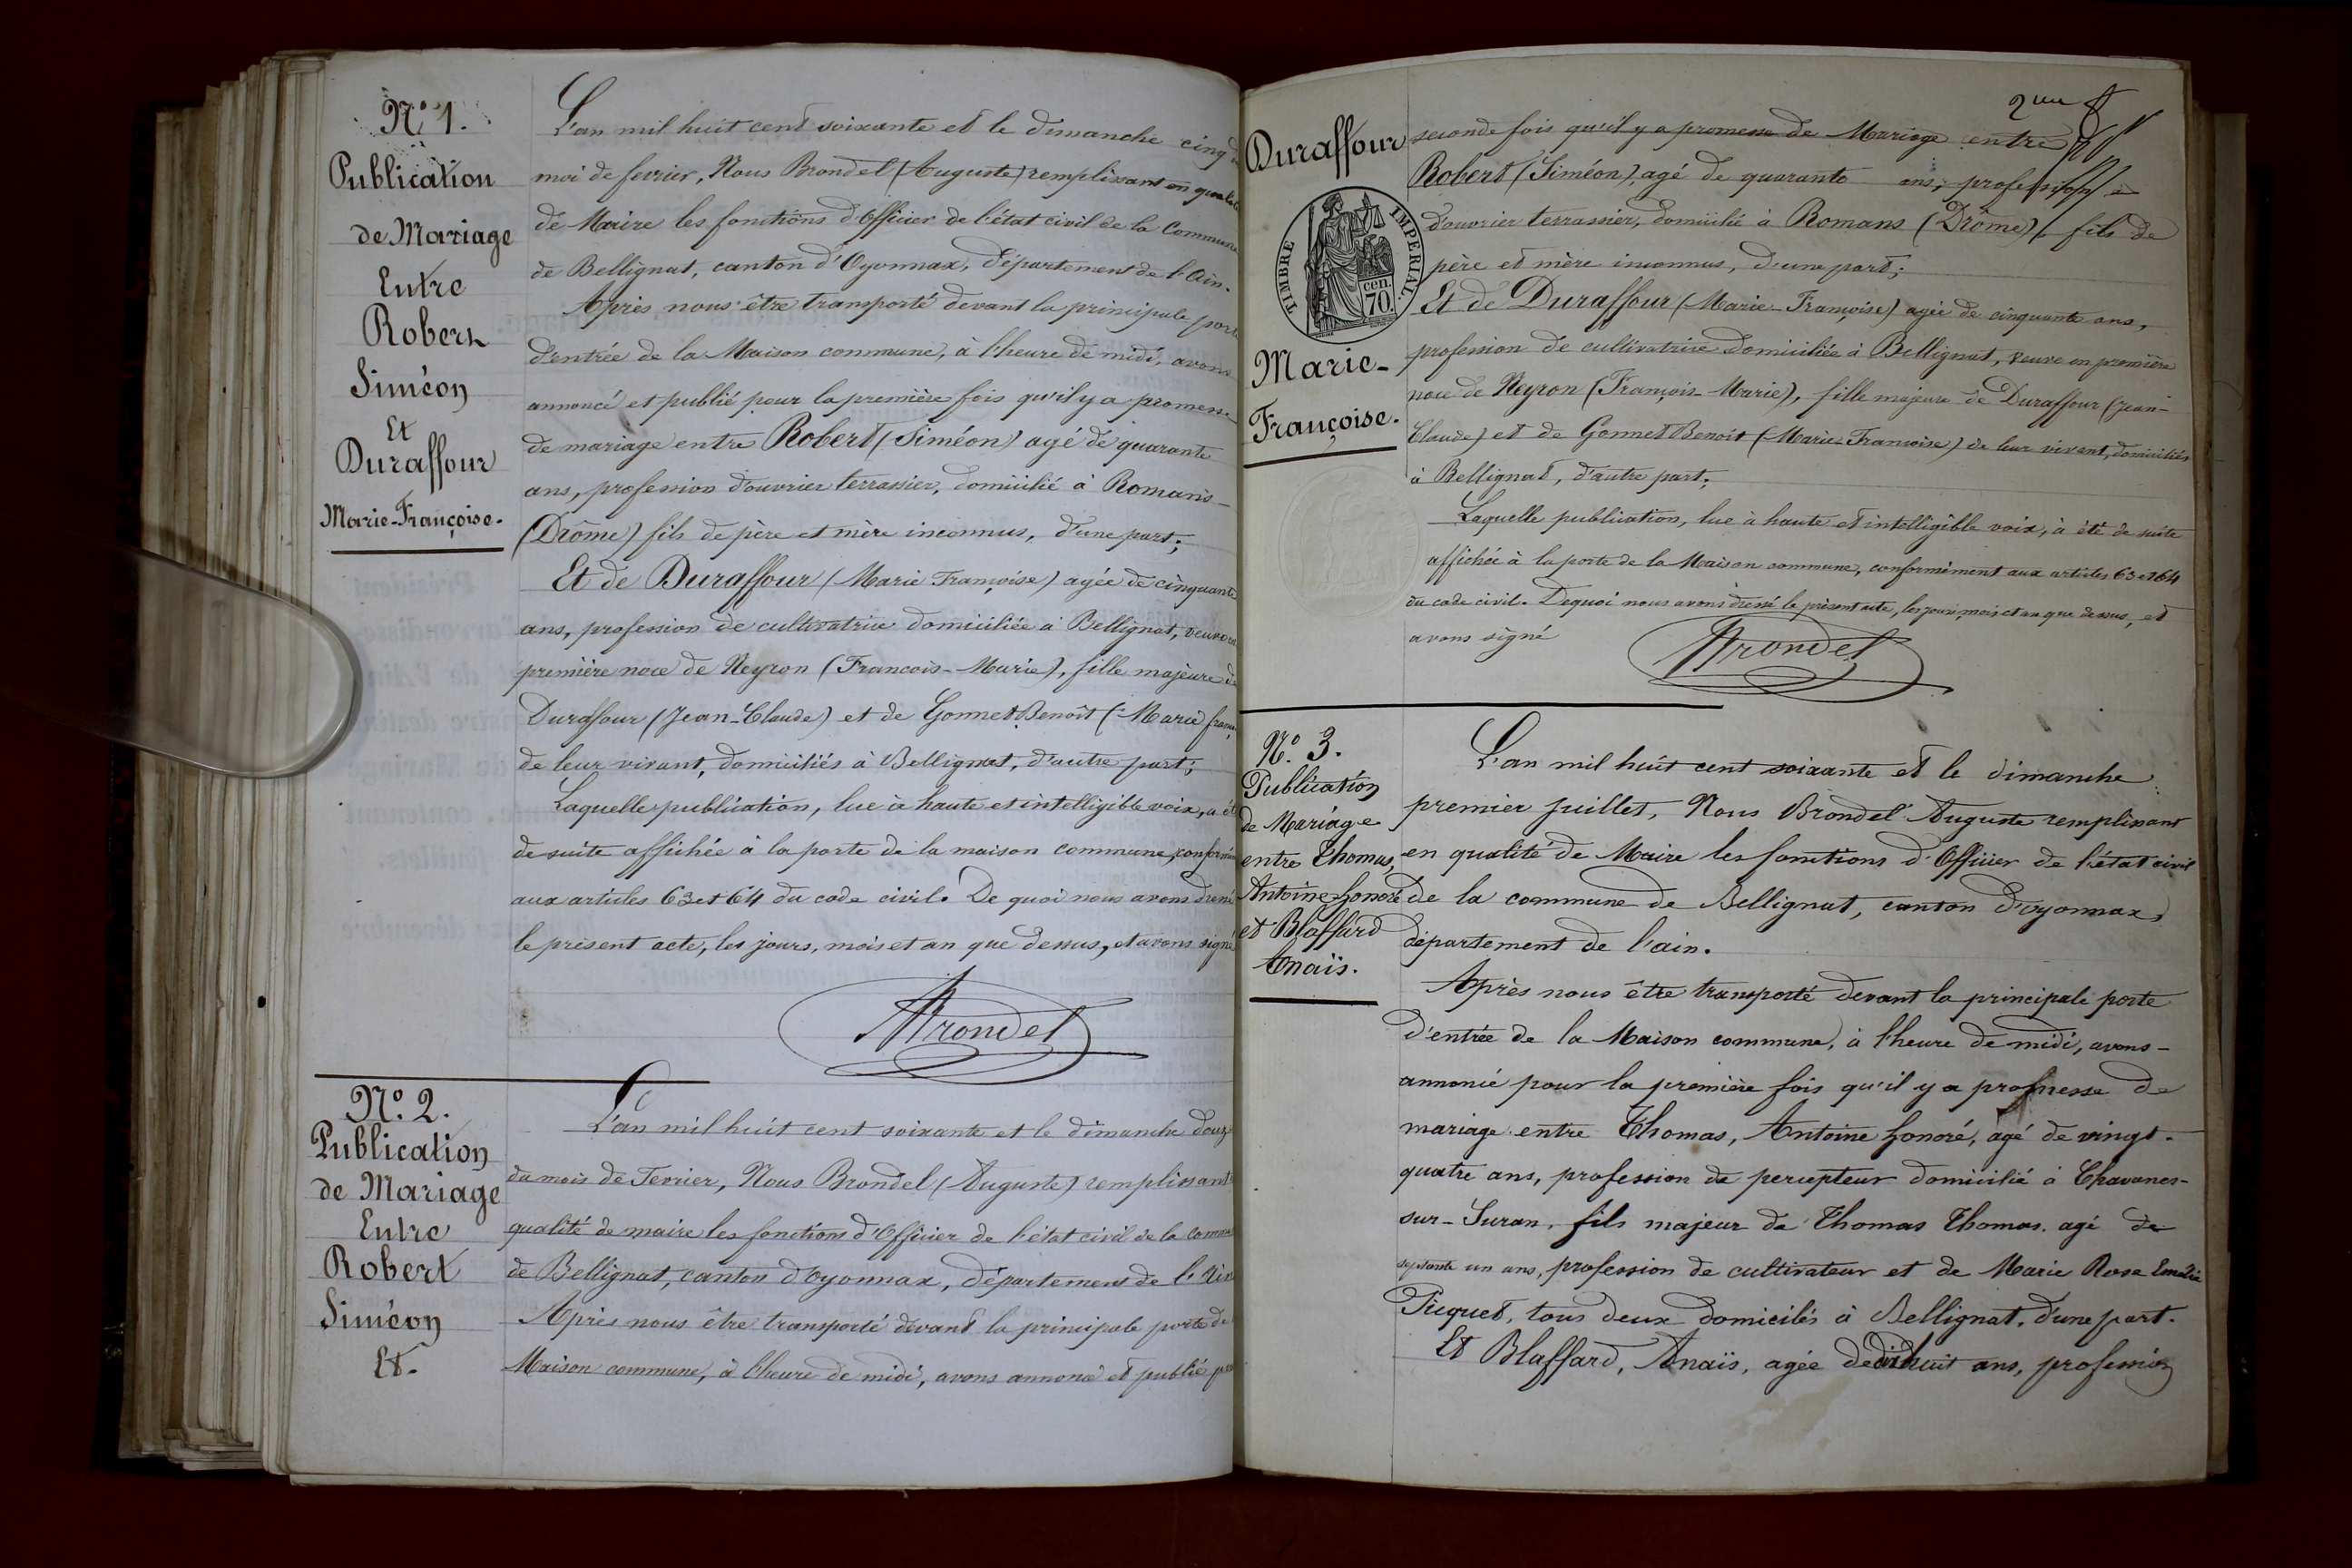 N° 1.
Publication
de Mariage
Entre
Robert
Siméon
Et
Duraffour
Marie-Françoise.
L'an mil huit cent soixante et le dimanche cinq
moi de fevrier, Nous Brondel (Auguste) remplissant en
de Maire les fonctions d'Officier de l'état civil de la Commune
de Bellignat, canton d'Oyonnax, département de l'Ain.
Après nous être transporté devant la principale
d'entrée de la Maison commune, à l'heure de midi, avons
annoncé et publié pour la première fois qu'il y a promesse
de mariage entre Robert (Siméon) agé de quarante
ans, profession d'ouvrier terrassier, domicilié à Romans
(Drôme) fils de père et mère inconnus, d'une part;
Et de Duraffour (Marie Françoise) agée de cinquante
ans, profession de cultivatrice domiciliée à Bellignat,
première noce de Neyron (Francois-Marie), fille majeure
Duraffour (Jean-Claude) et de Gonnet Benoît (Marie
de leur vivant, domiciliés à Bellignat, d'autre part;
Laquelle publication, lue à haute et intelligible voix, a
de suite affichée à la porte de la maison commune,
aux articles 63 et 64 du code civil. De quoi nous avons
le présent acte, les jours, mois et an que dessus, et avons signé
ABrondel
N° 2.
Publication
de Mariage
Entre
Robert
Siméon
Et.
L'an mil huit cent soixante et le dimanche
du mois de Fevrier, Nous Brondel (Auguste) remplissant
qualité de maire les fonctions d'Officier de l'état civil de la
de Bellignat, canton d'Oyonnax, département de l'Ain
Après nous être transporté devant la principale porte de
Maison commune, à l'heure de midi, avons annoncé et publié
2me
Duraffour
TIMBRE IMPERIAL.
cen.
70.
Marie-
Françoise.
seconde fois qu'il y a promesse de Mariage entre
Robert (Siméon), agé de quarante ans, profession
d'ouvrier terrassier, domicilié à Romans (Drôme), fils de
père et mère inconnus, d'une part;
Et de Duraffour (Marie-Françoise) agée de cinquante ans,
profession de cultivatrice domiciliée à Bellignat, veuve en première
noce de Neyron (François-Marie), fille majeure de Duraffour (Jean-
Claude) et de Gonnet Benoit (Marie Françoise) de leur vivant, domiciliés
à Bellignat, d'autre part;
Laquelle publication, lue à haute et intelligible voix, à été de suite
affichée à la porte de la Maison commune, conformément aux articles 63 et 64
du code civil. De quoi nous avons dressé le présent acte, les jours, mois et an que dessus, et
avons signé
ABrondel
N° 3.
Publication
de Mariage
entre Thomas,
Antoine honoré
et Blaffard
Anaïs.
L'an mil huit cent soixante et le dimanche
premier juillet, Nous Brondel Auguste remplissant
en qualité de Maire les fonctions d'Officier de l'état civil
de la commune de Bellignat, canton d'oyonnax,
département de l'ain.
Après nous être transporté devant la principale porte
d'entrée de la Maison commune, à l'heure de midi, avons-
annoncé pour la première fois qu'il y a promesse de
mariage entre Thomas, Antoine honoré, agé de vingt-
quatre ans, profession de percepteur domicilié à Chavanes-
sur-Suran, fils majeur de Thomas Thomas. agé de
septante un ans, profession de cultivateur et de Marie Rose Emélie
Picquet, tous deux domicilés à Bellignat. d'une part.
Et Blaffard, Anaïs, agée de dixhuit ans, profession